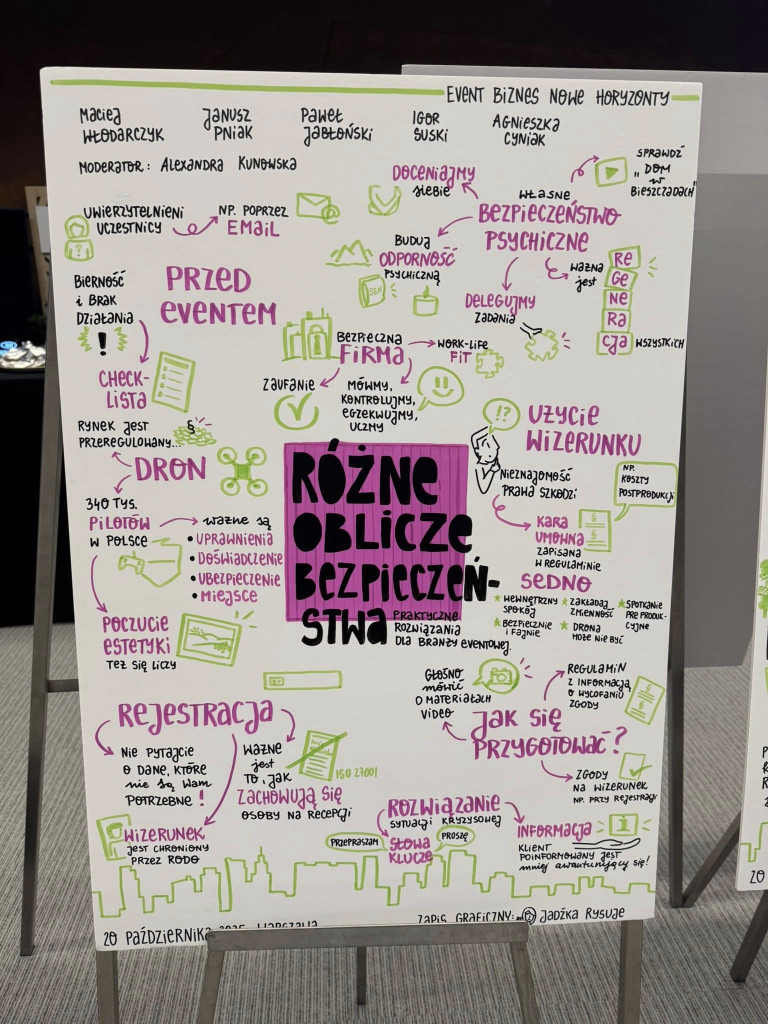 EVENT BIZNES NOWE HORYZONTY
Maciej
WŁODARCZYK
Janusz
PNIAK
Paweł
Jabłoński
IGOR
SUSKI
Agnieszka
CYNIAK
MODERATOR: ALEXANDRA KUNOWSKA
UWIERZYTELNIENI
UCZESTNICY
NP. POPRZEZ
EMAIL
@
?
PRZED
EVENTEM
BIERNOŚĆ
i BRAK
DZIAŁANIA
!
CHECK-
LISTA
DOCENIAJMY
siebie
WŁASNE
BEZPIECZEŃSTWO
PSYCHICZNE
SPRAWDŹ
„DOM
w
BIESZCZADACH"
BUDUJ
ODPORNOŚĆ
PSYCHICZNĄ
SEN
DELEGUJMY
ZADANIA
WAŻNA
jEST
Re
Ge
Ne
Ra
cja WSZYSTKICH
BEZPIECZNA
FIRMA
WORK-LIFE
FIT
ZAUFANIE
MÓWMY,
KONTROLUJMY,
EGZEKWUJMY,
UCZMY
RYNEK jEST
PRZEREGULOWANY...
§
DRON
340 TYS.
PILOTÓW
W POLSCE
WAŻNE SĄ
• UPRAWNIENIA
• DOŚWIADCZENIE
• UBEZPIECZENIE
• MIEJSCE
POCZUCIE
ESTETYKI
TEŻ SIĘ LICZY
RÓŻNE
OBLICZE
BEZPIECZEŃ-
STWA
PRAKTYCZNE
ROZWIĄZANIA
DLA BRANŻY EVENTOWEJ.
!?
UŻYCIE
WIZERUNKU
NIEZNAJOMOŚĆ
PRAWA SZKODZI
NP.
KOSZTY
POSTPRODUKCJI
KARA
UMOWNA
ZAPISANA
W REGULAMINIE
§
§
SEDNO
★ WEWNĘTRZNY
SPOKÓJ
★ BEZPIECZNIE
i FAJNIE
★ ZAKŁADAJ
ZMIENNOŚĆ
★ DRONA
MOŻE NIE BYĆ
★ SPOTKANIE
PRE PRODUK-
CYJNE
REJESTRACJA
NIE PYTAJCIE
O DANE, KTÓRE
nie są WAM
POTRZEBNE!
WAŻNE
jest
TO, JAK
ZACHOWUJĄ SIĘ
OSOBY NA RECEPCJI
ISO 27001
WIZERUNEK
JEST CHRONIONY
PRZEZ RODO
GŁOŚNO
mówić
O MATERIAŁACH
VIDEO
JAK SIĘ
PRZYGOTOWAĆ?
REGULAMIN
Z INFORMACJĄ
O WYCOFANIU
ZGODY
§
§
ZGODY
NA WIZERUNEK
NP. PRZY REJESTRACJI
ROZWIĄZANIE
SYTUACJI KRYZYSOWEJ
PRZEPRASZAM
PROSZĘ
SŁOWA
KLUCZE
INFORMACJA
i
KLIENT
POINFORMOWANY JEST
mniej awanturujący się!
20 PAŹDZIERNIKA 2025, WARSZAWA
ZAPIS GRAFICZNY: JADŹKA RYSUJE
20